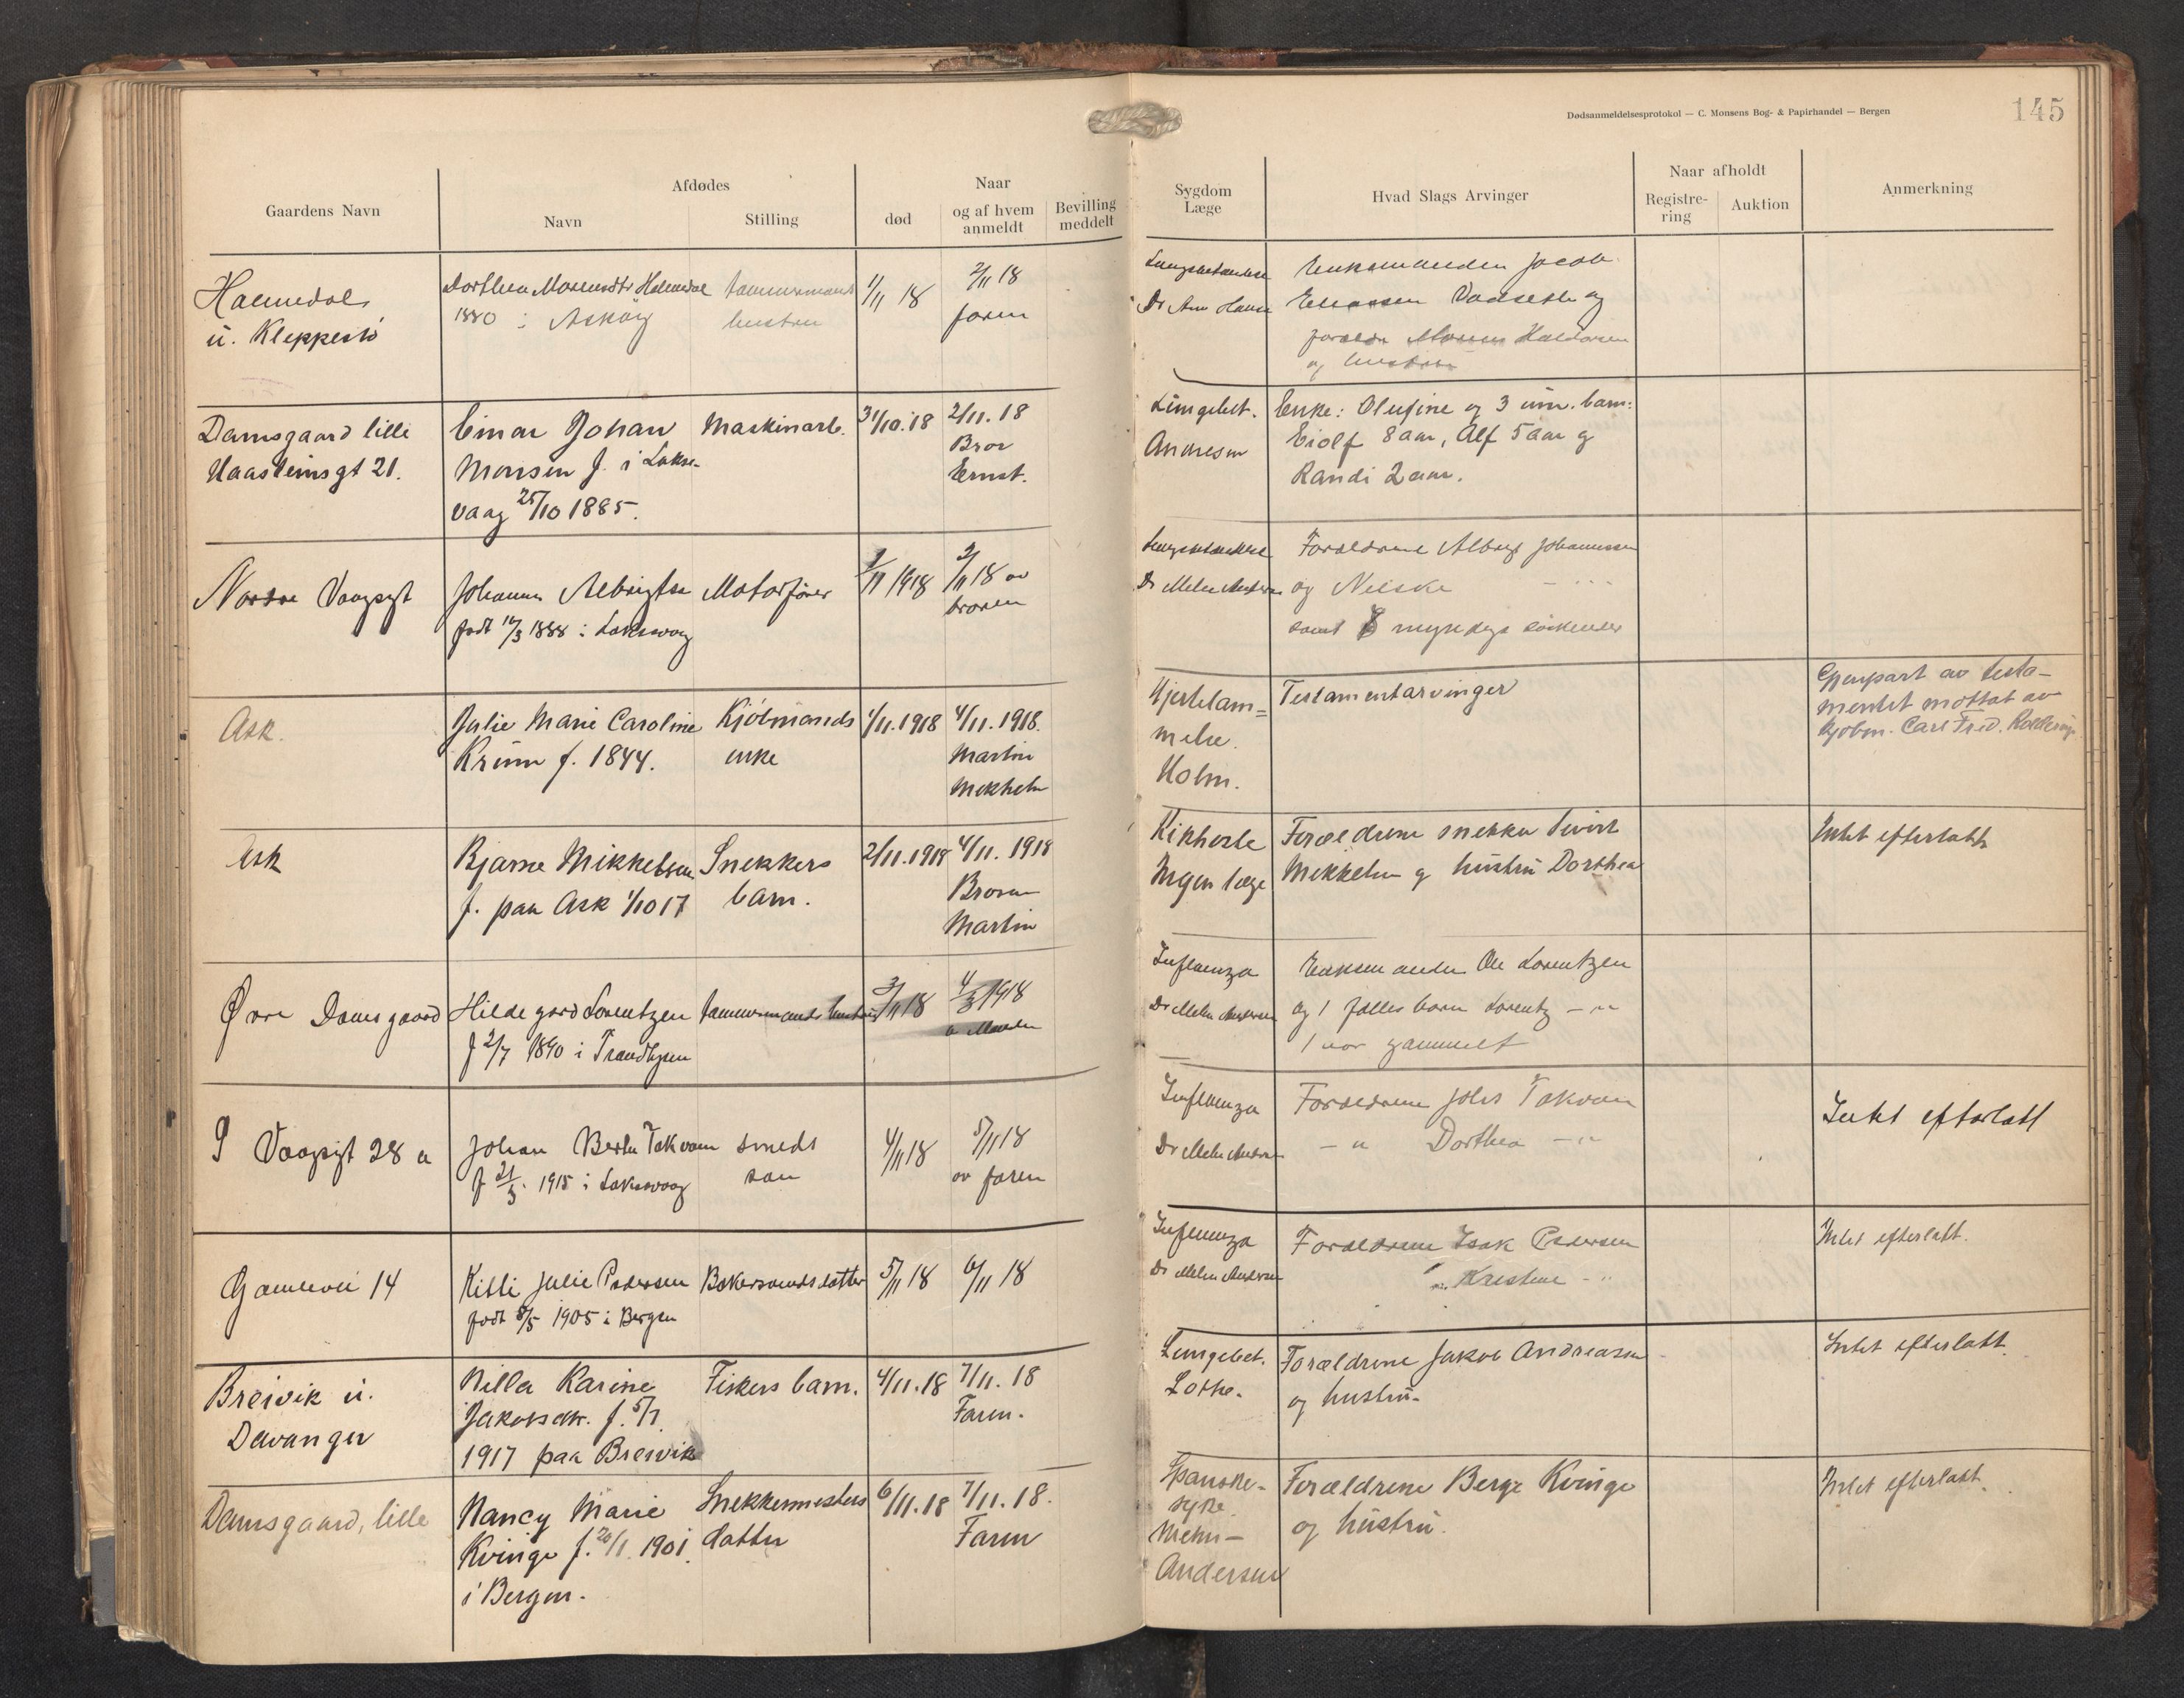 Dødsanmeldelsesprotokol — C. Monsens Bog- & Papirhandel — Bergen
145
Gaardens Navn
Afdødes
Navn
Stilling
død
Naar
og af hvem
anmeldt
Bevilling
meddelt
Sygdom
Læge
Hvad Slags Arvinger
Naar afholdt
Registre-
ring
Auktion
Anmerkning
u. Kleppestø
Dorthea
1880 i Askøy
hustru
1/11 18
2/11 18
faren
Enkemanden Jacob
og
og hustru
Damsgaard lille
Haasteinsgt 21.
Einar Johan
Monsen f. i Lakse-
vaag 25/10 1885.
Maskinarb.
31/10.18
2/11.18
Bror
Ernst.
Lungebet.
Andresen
Enke: Olufine og 3 um. barn:
Eiolf 8 aar, Alf 5 aar og
Randi 2 aar.
Nordre Vaagsgt
Johannes Albrigtsen
født 1888 i Laksevaag
Motorfører
/11 1918
/11 18 av
broren
Dr Mehn Andersen
Forældrene Albregt Johannessen
og
samt myndige søskende
Ask.
Julie Marie Caroline
Krüm f. 1844.
Kjøbmands
enke
1/11.1918
4/11.1918.
Martin
Mikkelsen
Hjertelam=
melse.
Holm.
Testamentarvinger
Gjenpart av testa-
mentet mottat av
Kjøbm. Carl Fred.
Ask
Bjarne Mikkelsen
f. paa Ask 1/10 17
Snekkers
barn.
2/11.1918
4/11. 1918
Broren
Martin
Kikhoste
Ingen læge
Forældrene snekker Sivert
Mikkelsen og hustru Dorthea
Intet efterlatt
Øvre Damsgaard
Hildegard Lorentzen
f 2/7 1890 i Trondhjem
tømmermands hustru
3/11 18
av Manden
Influenza
Dr Mehn Andersen
Enkemanden Ole Lorentzen
og 1 fælles barn Lorentz — " —
1 aar gammelt
S Vaagsgt 28 a
Johan Takvam
f 21/3. 1915 i Laksevaag
smeds
søn
4/11 18
5/11 18
av faren
Influenza
Dr Mehn Andersen
Forældrene Johs Takvam
— " Dorthea — " —
Intet efterlatt
Gamlevei 14
Kitti Julie Pedersen
født 8/5 1905 i Bergen
5/11 18
6/11 18
Influenza
Dr Mehn Andersen
Forældrene Isak Pedersen
" Kristine — "
Intet efterlatt.
Breivik u.
Davanger
Nilla Karine
Jakobsdtr. f. 5/1.
1917 paa Breivik
Fiskers barn.
4/11.18
7/11. 18
Faren.
Lungebet.
Lothe.
Forældrene Jakob Andreassen
og hustru.
Intet efterlatt.
Damsgaard, lille
Nancy Marie
Kvinge f. 20/1. 1901.
i Bergen.
Snekkermesters
datter
6/11.18
7/11.18.
Faren
Spanske-
syke.
Mehn—
Andersen
Forældrene Berge Kvinge
og hustru.
Intet efterlatt.